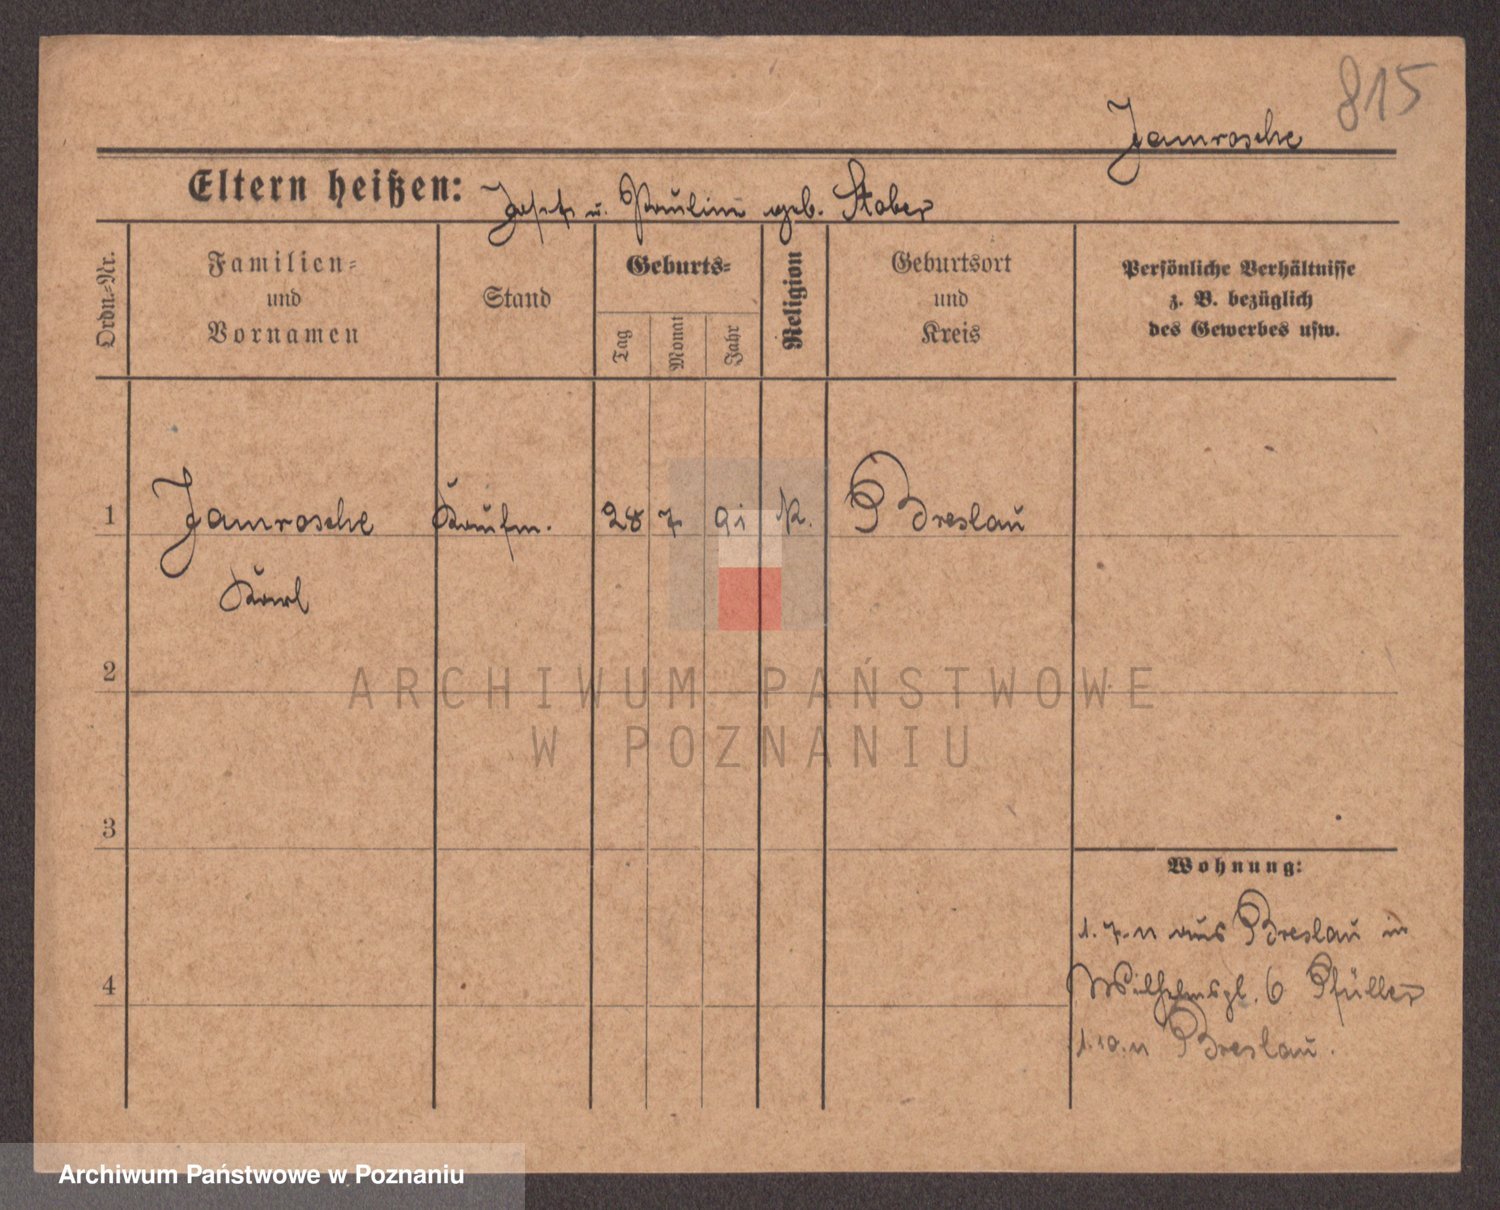 815
Jamrosche
Eltern heißen: Josef u. Pauline geb. Stober
Ordn.-Nr.
Familien- und Vornamen
Stand
Geburts-
Tag
Monat
Jahr
Religion
Geburtsort und Kreis
Persönliche Verhältnisse
z. B. bezüglich
des Gewerbes usw.
1 Jamrosche Kaufm. 28 7 91 K. Breslau
Karl
2
ARCHIWUM PAŃSTWOWE
W POZNANIU
3
Wohnung:
1.7.11 aus Breslau in
4
Wilhelmspl. 6 Pfüller
1.10.11 Breslau.
Archiwum Państwowe w Poznaniu